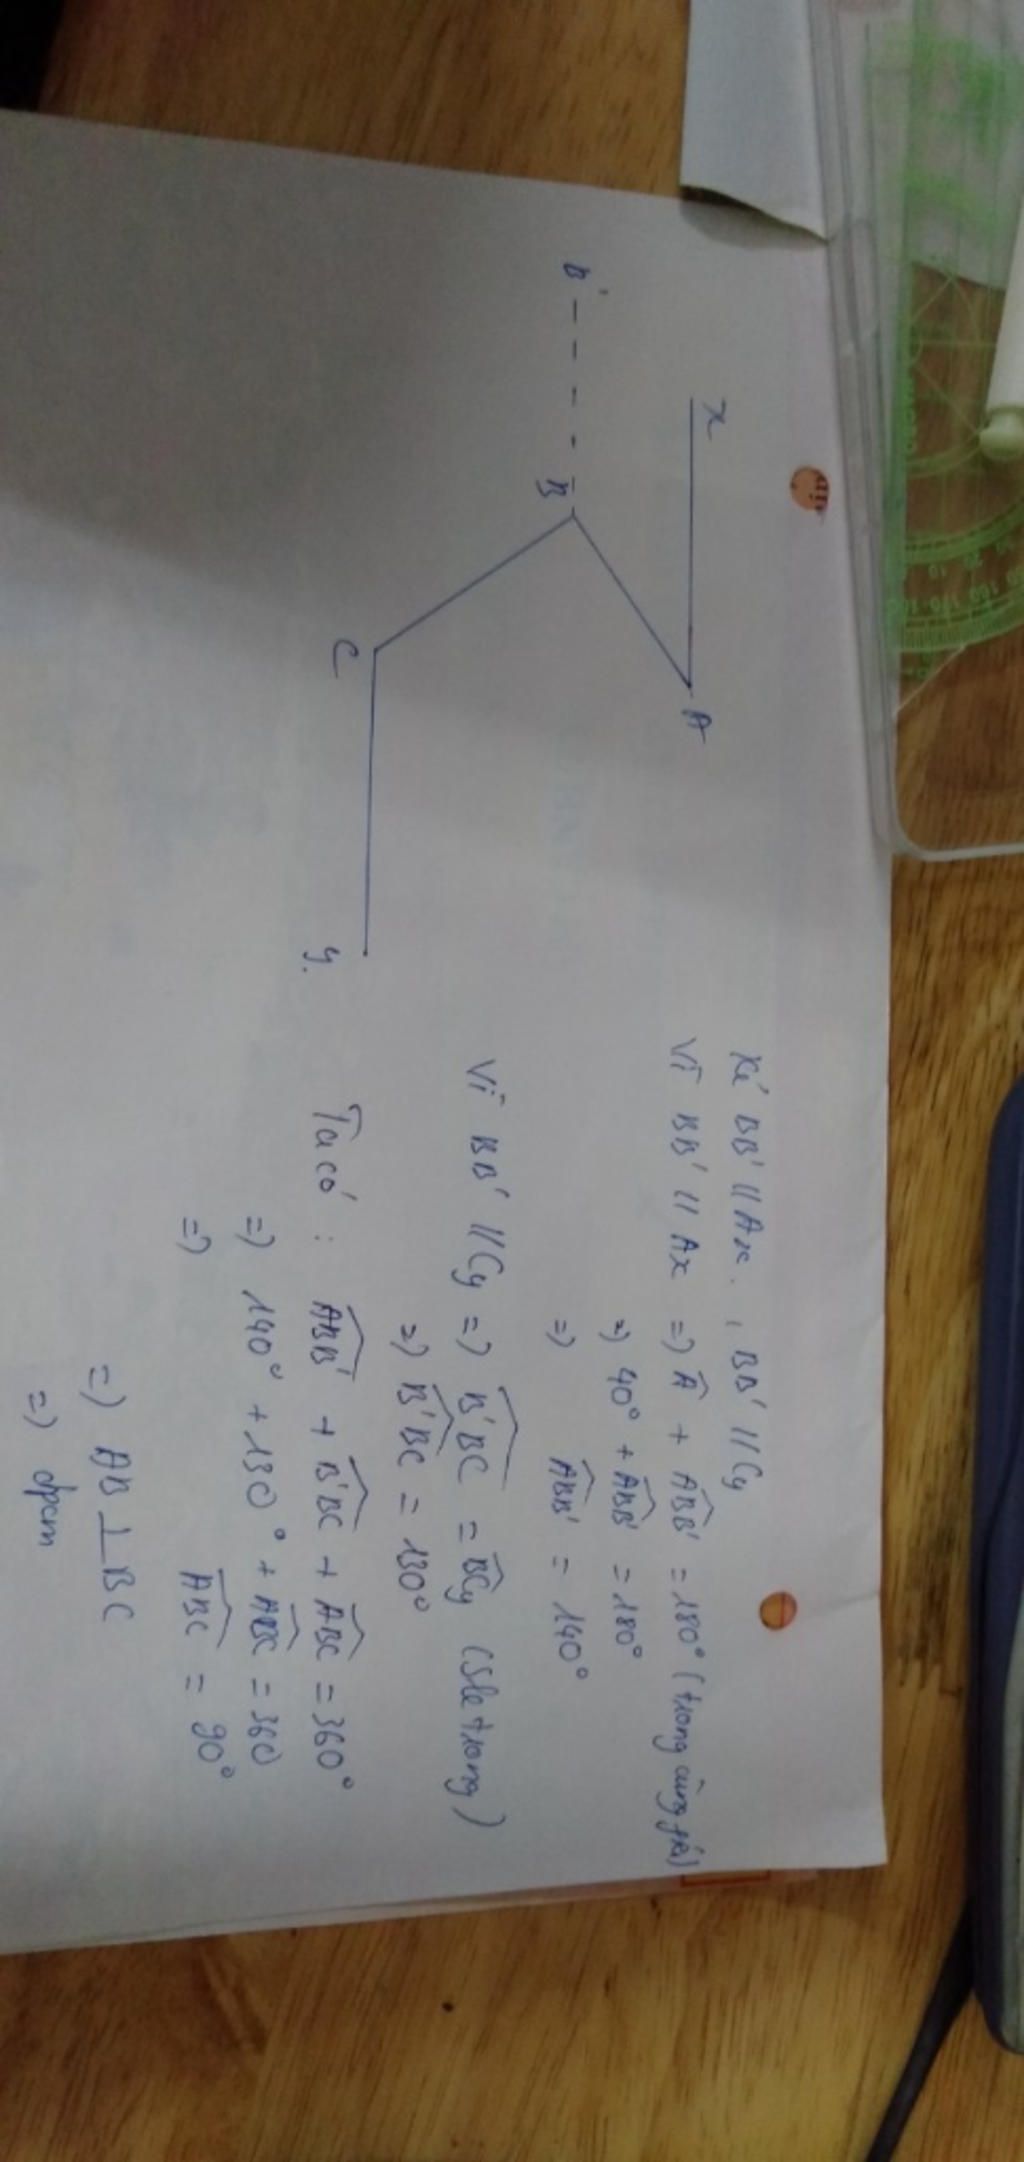 x
A
B'
B
C
y
Kẻ BB' // Ax, BB' // Cy
Vì BB' // Ax => Â + ABB' = 180° (trong cùng phía)
=> 40° + ABB' = 180°
=> ABB' = 140°
Vì BB' // Cy => B'BC = BCy (Sle trong)
=> B'BC = 130°
Ta có : ABB' + B'BC + ABC = 360°
=> 140° + 130° + ABC = 360
=> ABC = 90°
=> AB ⊥ BC
=> đpcm